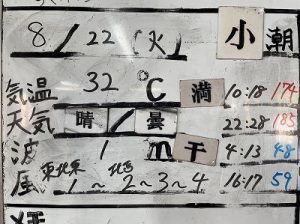 8/22(火) 小潮
気温 32℃ 満 10:18 174
天気 晴/曇 22:28 185
波 1m 干 4:13 48
風 東北東 1～ 北西 2～3～4 16:17 59